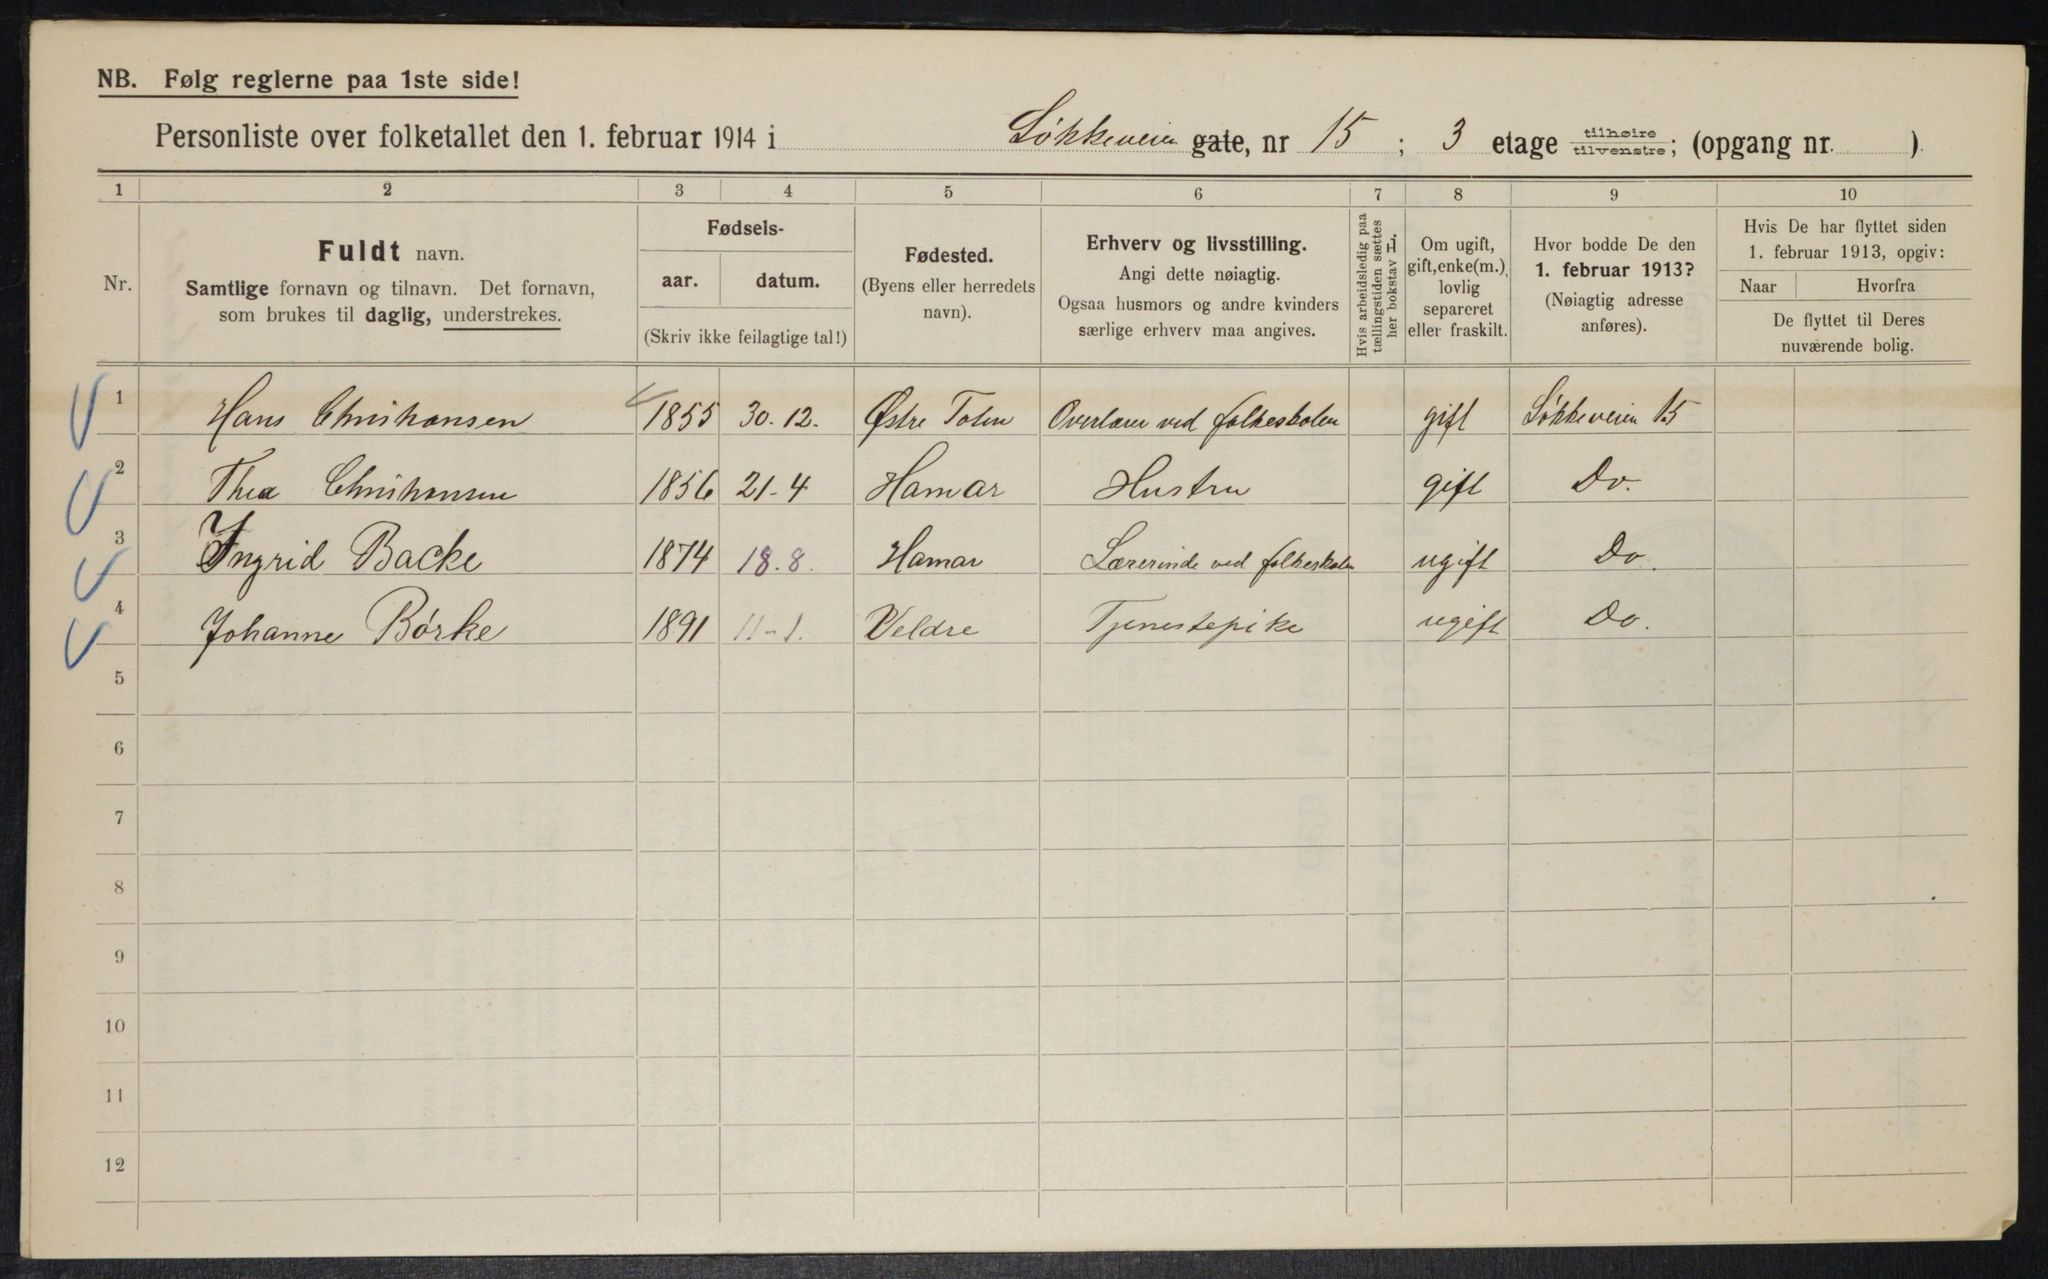 NB. Følg reglerne paa 1ste side!
Personliste over folketallet den 1. februar 1914 i Løkkeveien gate, nr 15 ; 3 etage tilhøire tilvenstre; (opgang nr. ).
1 2 3 4 5 6 7 8 9 10
Nr.
Fuldt navn.
Samtlige fornavn og tilnavn. Det fornavn,
som brukes til daglig, understrekes.
Fødsels-
aar. datum.
(Skriv ikke feilagtige tal!)
Fødested.
(Byens eller herredets
navn).
Erhverv og livsstilling.
Angi dette nøiagtig.
Ogsaa husmors og andre kvinders
særlige erhverv maa angives.
Hvis arbeidsledig paa
tællingstiden sættes
her bokstav L.
Om ugift,
gift, enke(m.),
lovlig
separeret
eller fraskilt.
Hvor bodde De den
1. februar 1913?
(Nøiagtig adresse
anføres).
Hvis De har flyttet siden
1. februar 1913, opgiv:
Naar Hvorfra
De flyttet til Deres
nuværende bolig.
1 Hans Christiansen 1855 30. 12. Østre Toten Overlærer ved folkeskolen gift Løkkeveien 15
2 Thea Christiansen 1856 21-4 Hamar Hustru gift Do.
3 Ingrid Backe 1874 18. 8. Hamar Lærerinde ved folkeskolen ugift Do.
4 Johanne Børke 1891 11-1. Veldre Tjenestepike ugift Do.
5
6
7
8
9
10
11
12